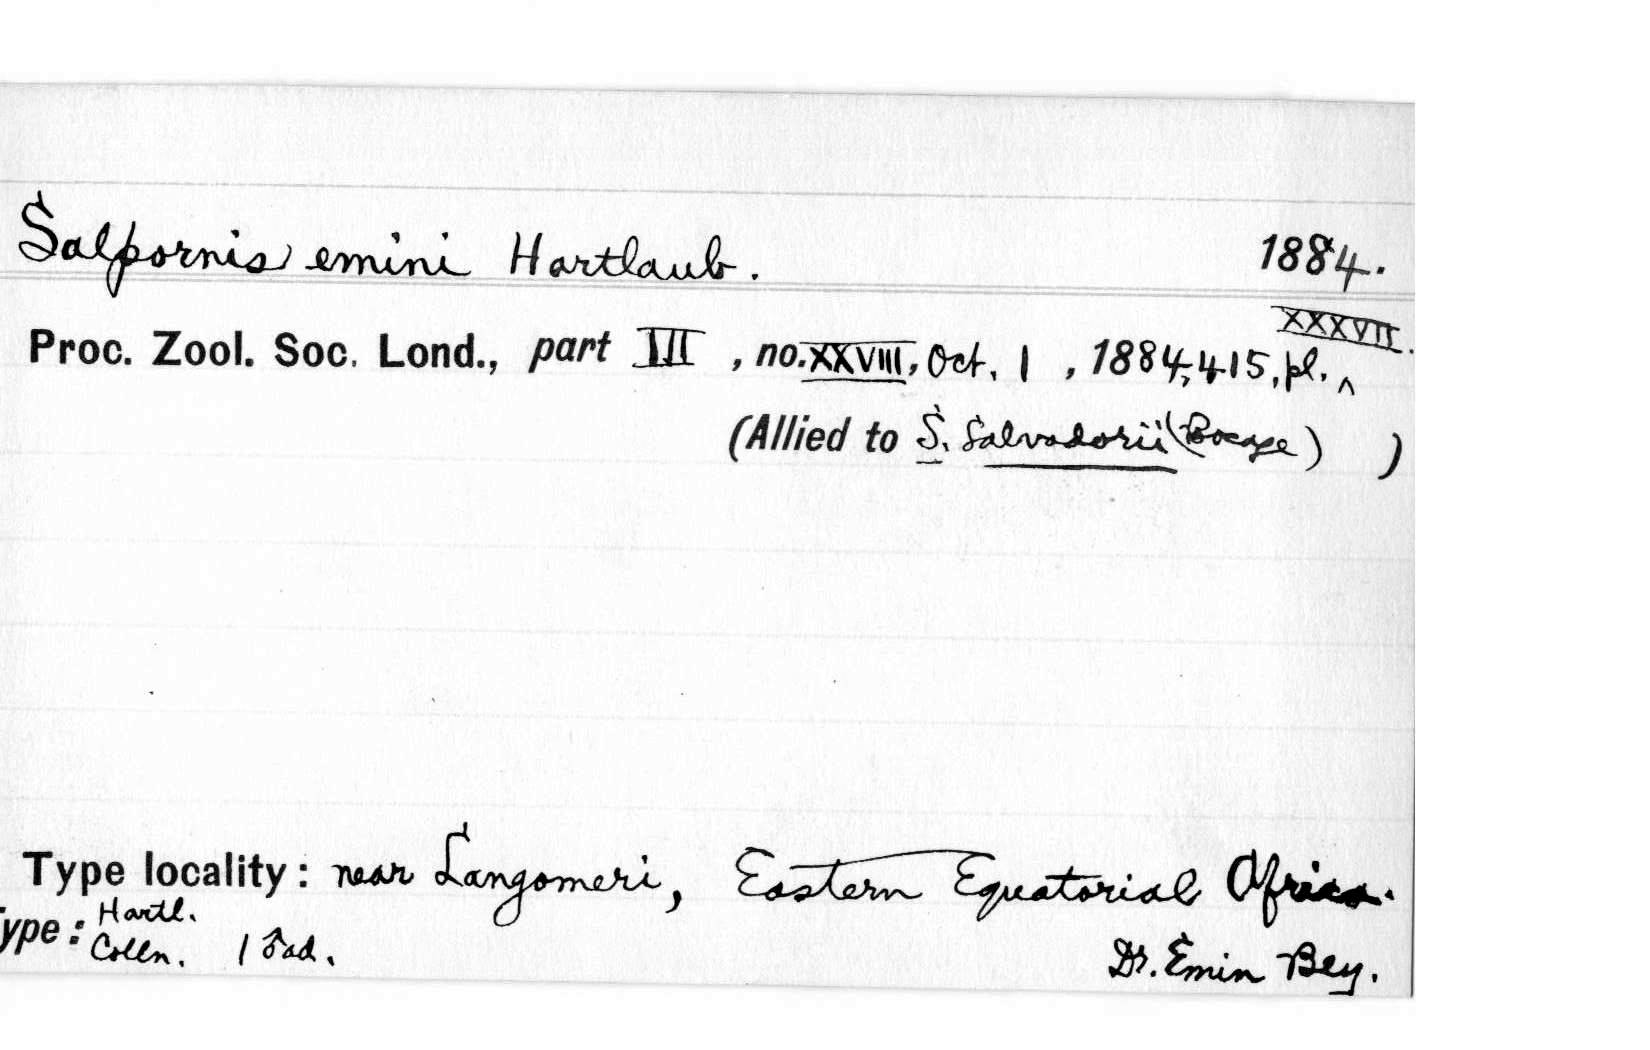 Salpornis emini Hartlaub. 1884.
Proc. Zool. Soc. Lond., part III, no. XXVIII, Oct. 1, 1884, 415, pl. ^ XXXVII.
(Allied to S. Salvadorii (Bocage) )
Type locality: near Langomeri, Eastern Equatorial Africa.
ype: Hartl. Colln. 1 ♂ ad. Dr. Emin Bey.